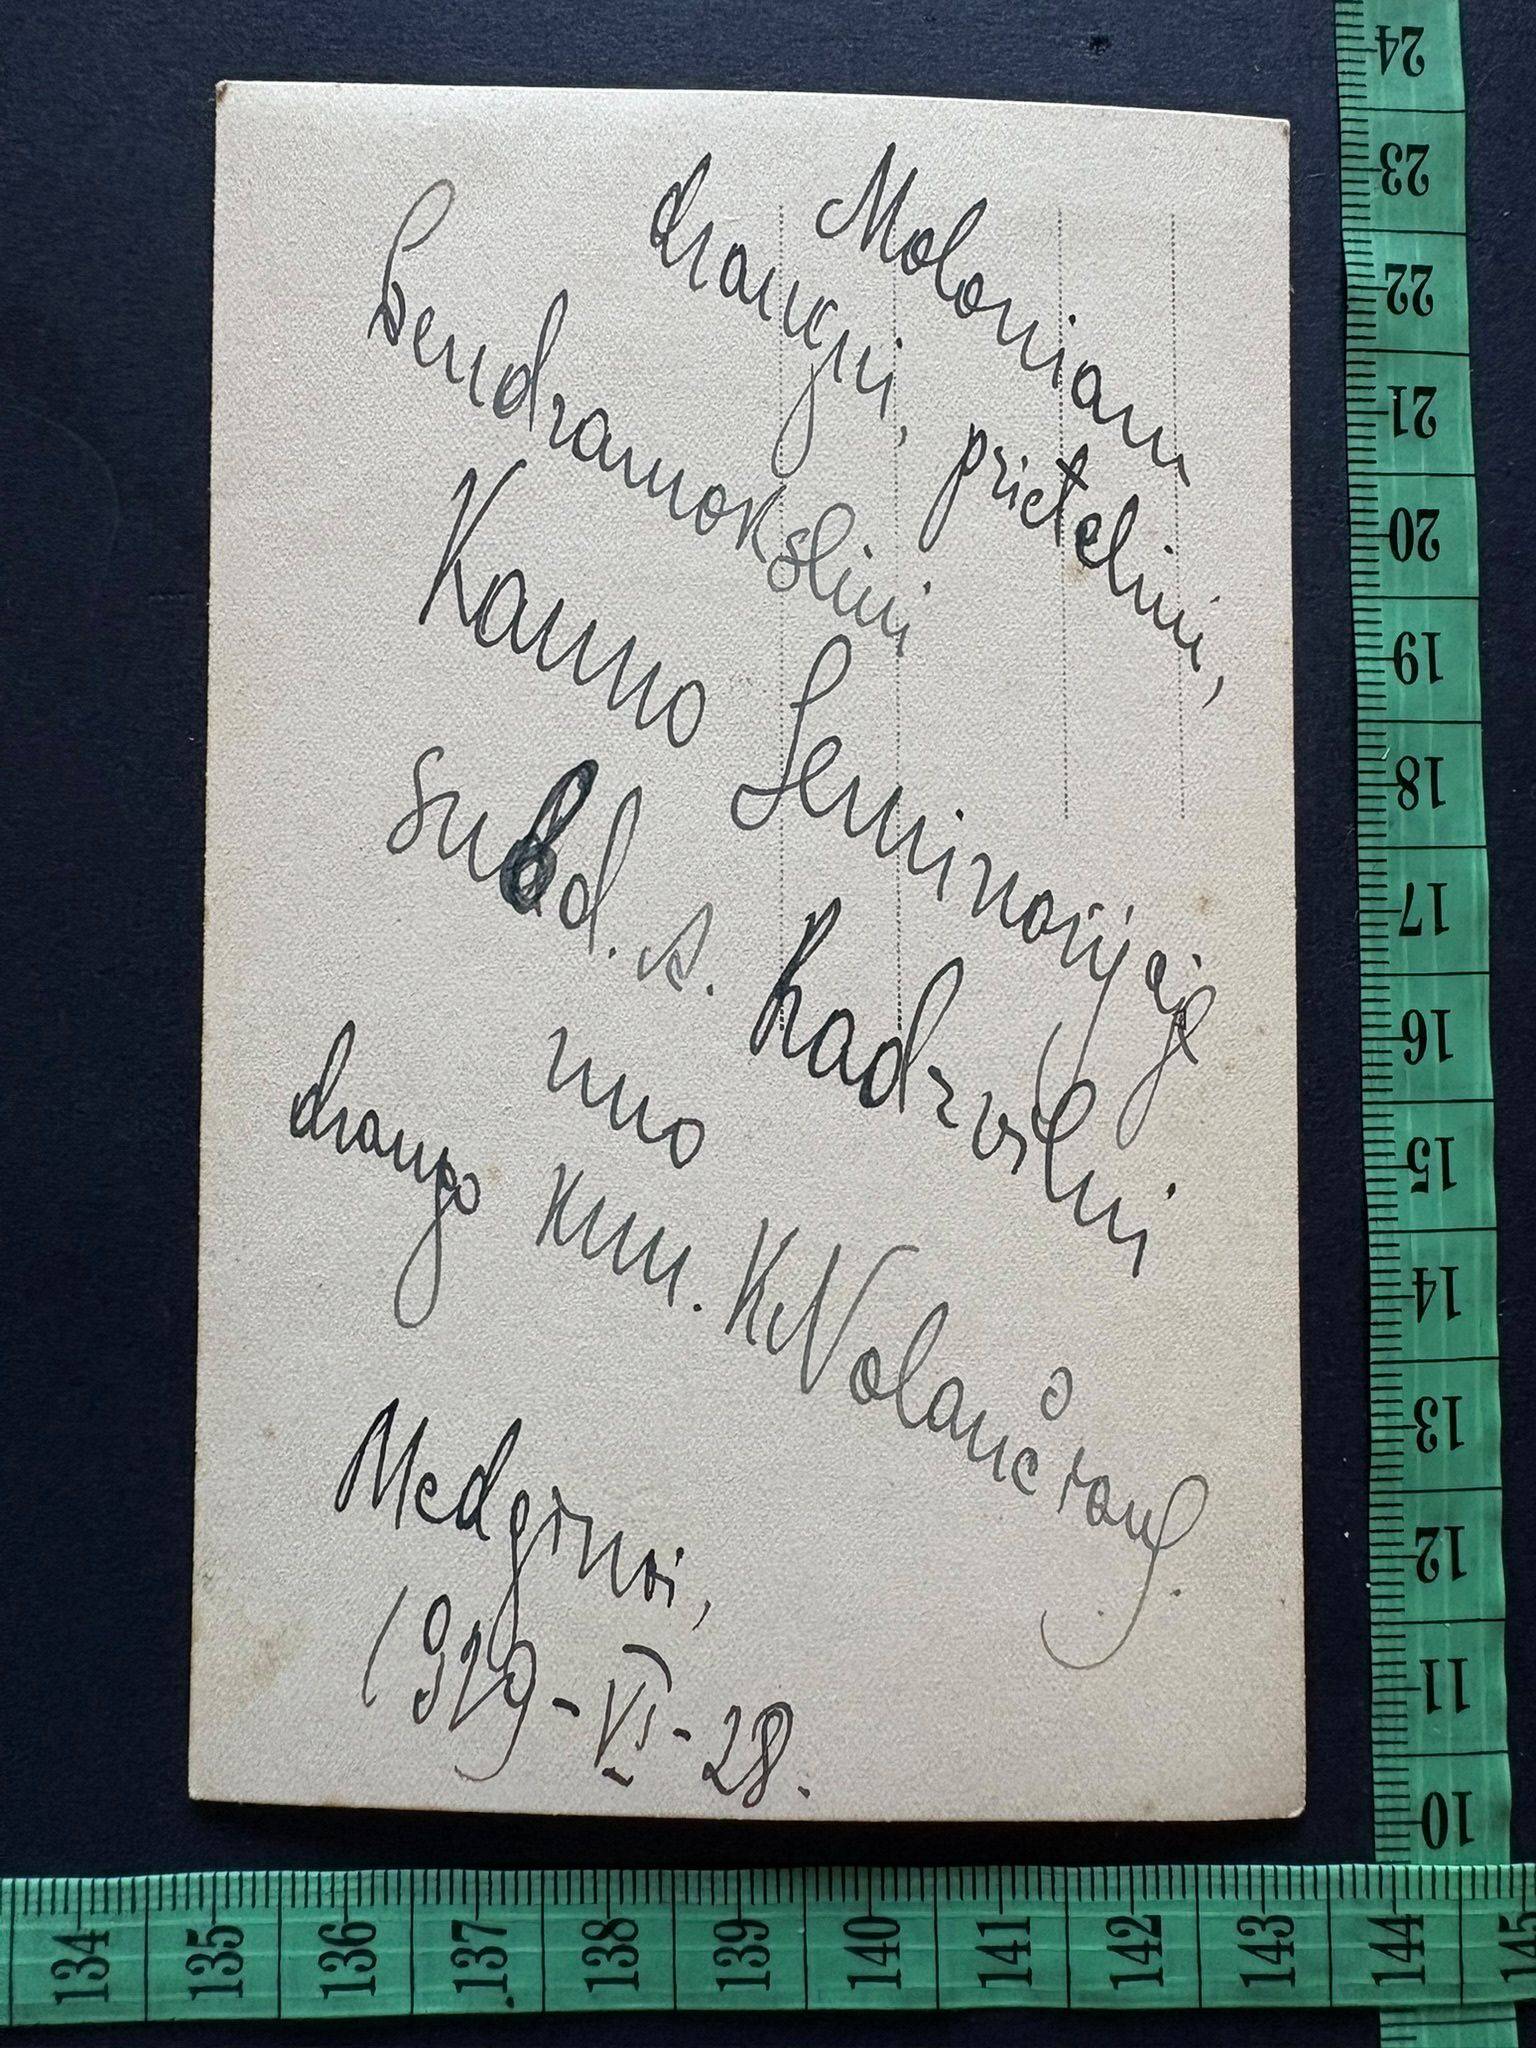 Maloniam
draugui, prieteliui,
bendramoksliui
Kauno Seminarijoje
subd. A. Radzvilui
nuo
drauго kun. K.Valančiaus.
Medginai,
1929-VI-28.
24
23
22
21
20
19
18
17
16
15
14
13
12
11
10
134
135
136
137
138
139
140
141
142
143
144
145